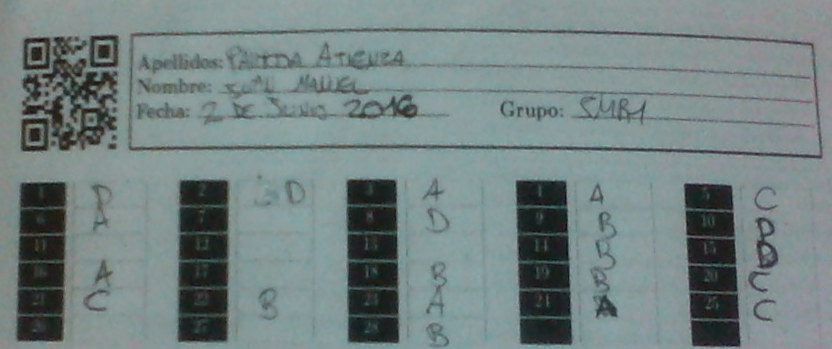 Apellidos: PARTIDA ATIENZA
Nombre: JUAN MANUEL
Fecha: 2 DE JUNIO 2016 Grupo: SMR1
1 D 2 D 3 A 4 A 5 C
6 A 7 8 D 9 B 10 D
11 12 13 14 B 15 D
16 A 17 18 B 19 B 20 C
21 C 22 B 23 A 24 A 25 C
26 27 28 B